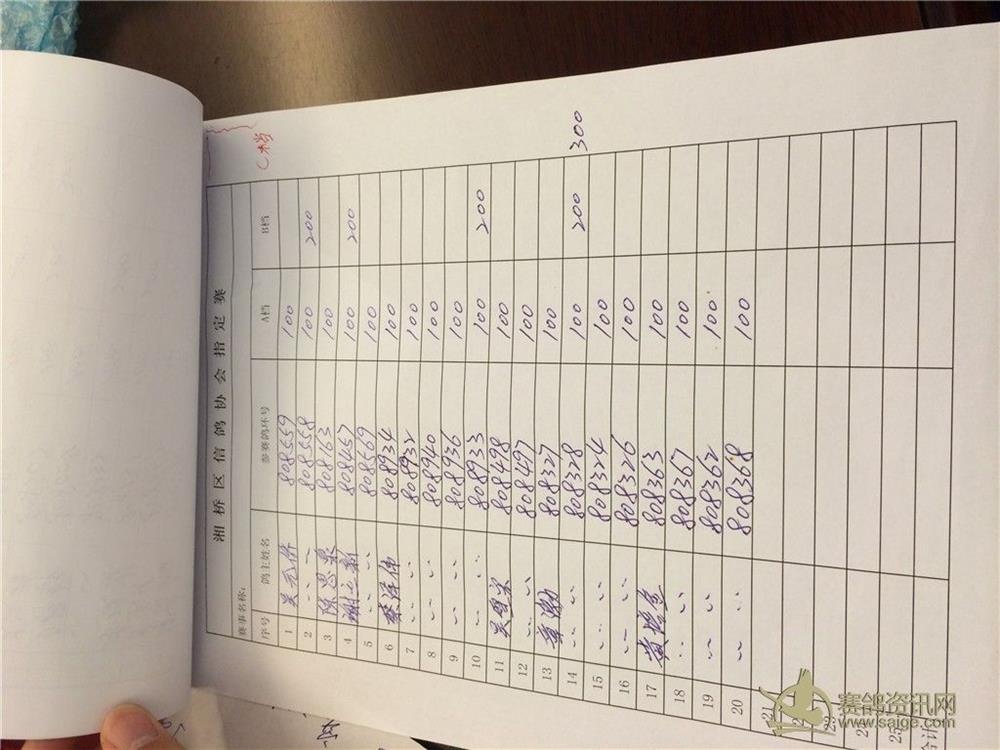 湘桥区信鸽协会指定赛
C档
赛事名称:
序号 鸽主姓名 参赛鸽环号 A档 B档
1 吴元伟 808559 100
2 〃 808558 100 200
3 陈思泉 808163 100
4 谢立新 808457 100 200
5 〃 808569 100
6 蔡泽伟 808934 100
7 〃 808932 100
8 〃 808940 100
9 〃 808936 100
10 〃 808933 100 200
11 808498 100
12 〃 808497 100
13 808327 100
14 〃 808328 100 200 300
15 〃 808324 100
16 〃 808326 100
17 808363 100
18 〃 808367 100
19 〃 808362 100
20 〃 808368 100
21
23
24
25
合计
赛鸽资讯网
www.saige.com